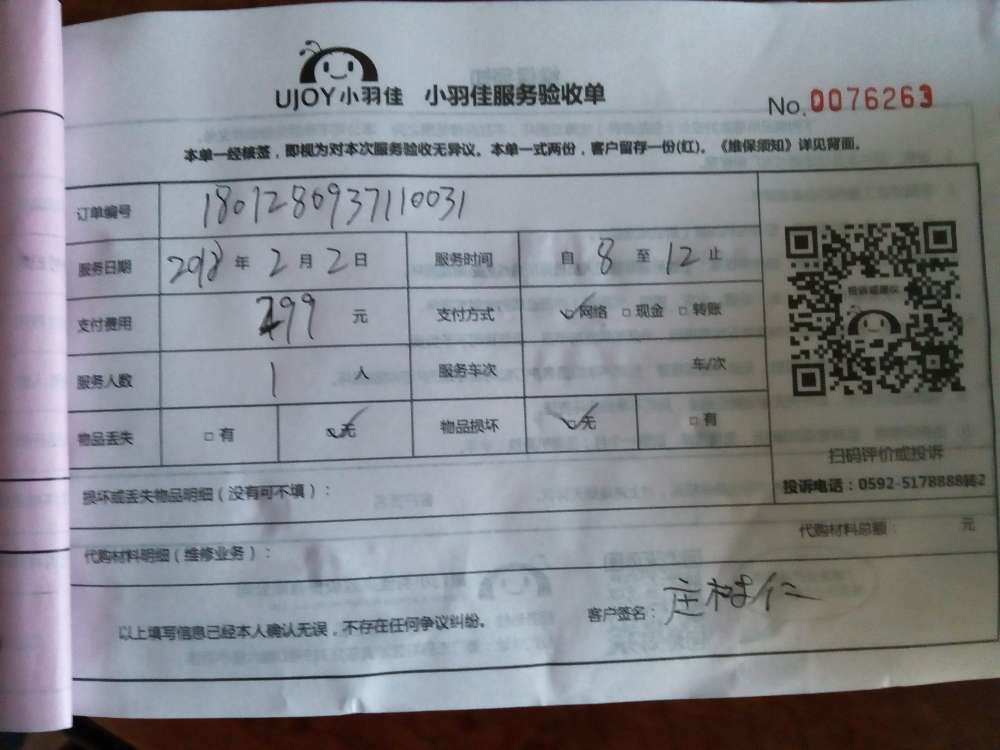 UJOY小羽佳 小羽佳服务验收单
No.0076263
本单一经核签，即视为对本次服务验收无异议。本单一式两份，客户留存一份(红)。《维保须知》详见背面。
订单编号 18012809371 10031
服务日期 2018 年 2 月 2 日 服务时间 自 8 至 12 止
支付费用 299 元 支付方式 ☑网络 □现金 □转账
服务人数 1 人 服务车次 车/次
物品丢失 □有 ☑无 物品损坏 ☑无 □有
投诉或建议
扫码评价或投诉
投诉电话：0592-5178888转2
损坏或丢失物品明细（没有可不填）：
代购材料总额： 元
代购材料明细（维修业务）：
以上填写信息已经本人确认无误，不存在任何争议纠纷。
客户签名：庄树仁